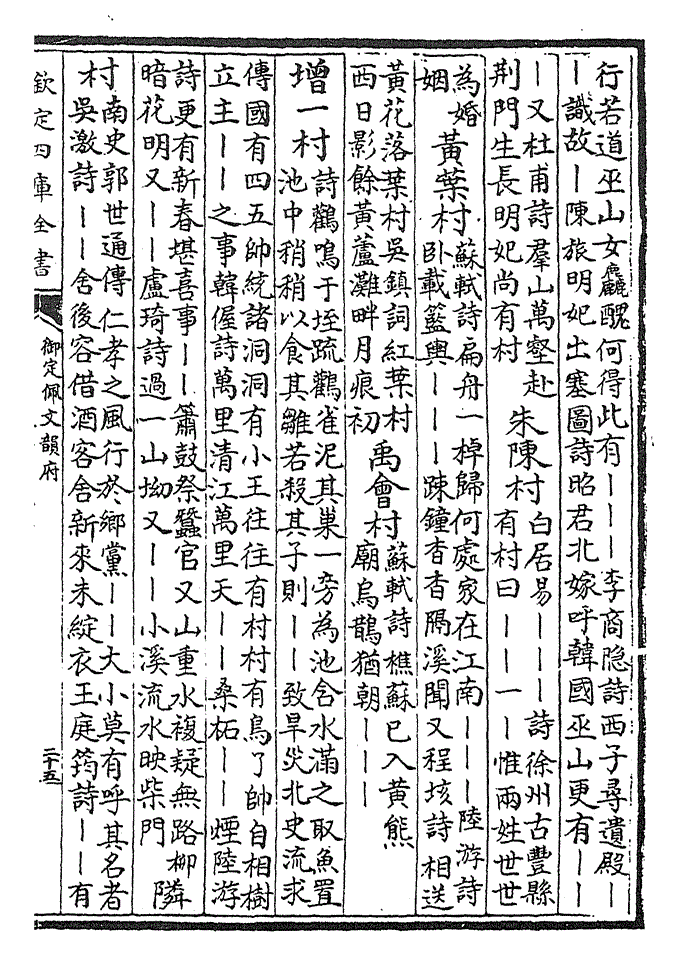 行若道巫山女麤醜何得此有｜｜｜李商隱詩西子尋遺殿｜
｜識故｜陳旅明妃出塞圖詩昭君北嫁呼韓國巫山更有｜｜
｜又杜甫詩羣山萬壑赴
荆門生長明妃尚有村
朱陳村
白居易｜｜｜詩徐州古豐縣
有村曰｜｜一｜惟兩姓世世
為婚
姻
黃葉村
蘇軾詩扁舟一棹歸何處家在江南｜｜｜陸游詩
卧載籃輿｜｜｜踈鐘杳杳隔溪聞又程垓詩相送
黃花落葉村吳鎮詞紅葉村
西日影餘黃蘆灘畔月痕初
禹會村
蘇軾詩樵蘇已入黃熊
廟烏鵲猶朝｜｜｜
增一村
詩鸛鳴于垤疏鸛雀泥其巢一旁為池含水滿之取魚置
池中稍稍以食其雛若殺其子則｜｜致旱災北史流求
傳國有四五帥統諸洞洞有小王往往有村村有鳥了帥自相樹
立主｜｜之事韓偓詩萬里清江萬里天｜｜桑柘｜｜煙陸游
詩更有新春堪喜事｜｜簫鼓祭蠶官又山重水複疑無路柳
暗花明又｜｜盧琦詩過一山坳又｜｜小溪流水映柴門
隣
村
南史郭世通傳仁孝之風行於鄉黨｜｜大小莫有呼其名者
吳激詩｜｜舍後容借酒客舍新來未綻衣王庭筠詩｜｜有
欽定四庫全書
御定佩文韻府
二十五